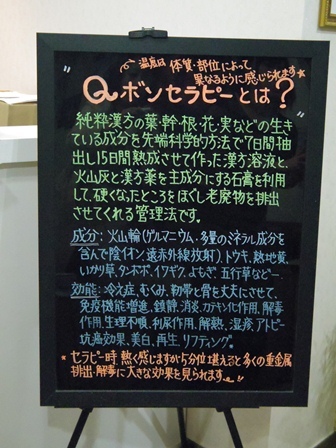 温度は 体質・部位によって
異なるように感じられます
"Qボンセラピーとは?"
純粋漢方の葉・幹・根・花・実などの生き
ている成分を先端科学的方法で7日間抽
出し15日間熟成させて作った漢方溶液と、
火山灰と漢方薬を主成分にする石膏を利用
して、硬くなったところをほぐし老廃物を排出
させてくれる管理法です。
成分:火山輪(ゲルマニウム・多量のミネラル成分を
含んで陰イオン、遠赤外線放射)、トウキ、熟地黄、
いかり草、タンポポ、イワギク、よもぎ、五行草など…
効能:冷え症、むくみ、靭帯と骨を丈夫にさせて、
免疫機能増進、鎮静、消炎、カチン化作用、解毒
作用、生理不順、利尿作用、解熱、湿疹、アトピー
抗癌効果、美白、再生、リフティング。
*セラピー時、熱く感じますが5分位堪えると多くの重金属
排出・解毒に大きな効果を見られます。